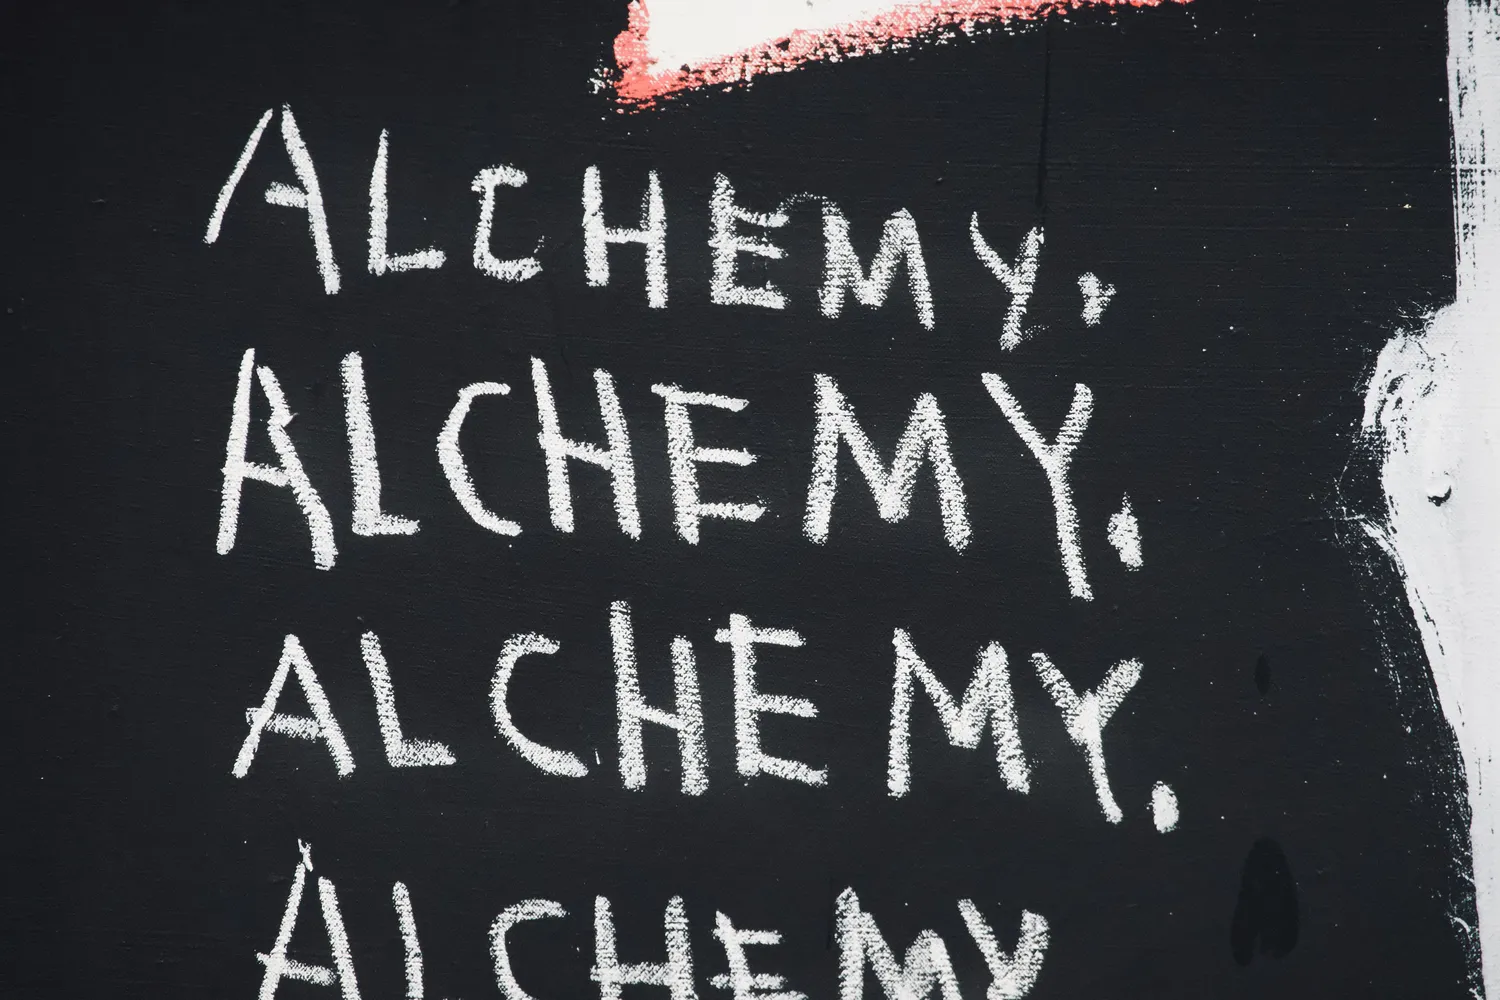 ALCHEMY.
ALCHEMY.
ALCHEMY.
ALCHEMY